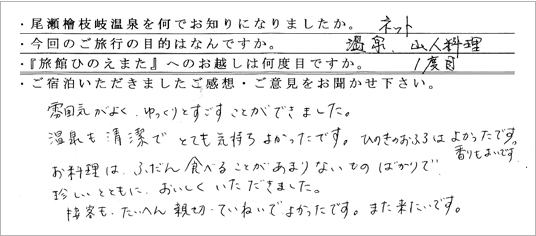 ・尾瀬檜枝岐温泉を何でお知りになりましたか。 ネット
・今回のご旅行の目的はなんですか。 温泉、山人料理
・『旅館ひのえまた』へのお越しは何度目ですか。 1度目
・ご宿泊いただきましたご感想・ご意見をお聞かせ下さい。
雰囲気がよく、ゆっくりとすごすことができました。
温泉も清潔でとても気持ちよかったです。ひのきのおふろはよかったです。
香りもよいです。
お料理は、ふだん食べることがあまりないものばかりで
珍しいとともに、おいしくいただきました。
接客も、たいへん親切、ていねいでよかったです。また来たいです。